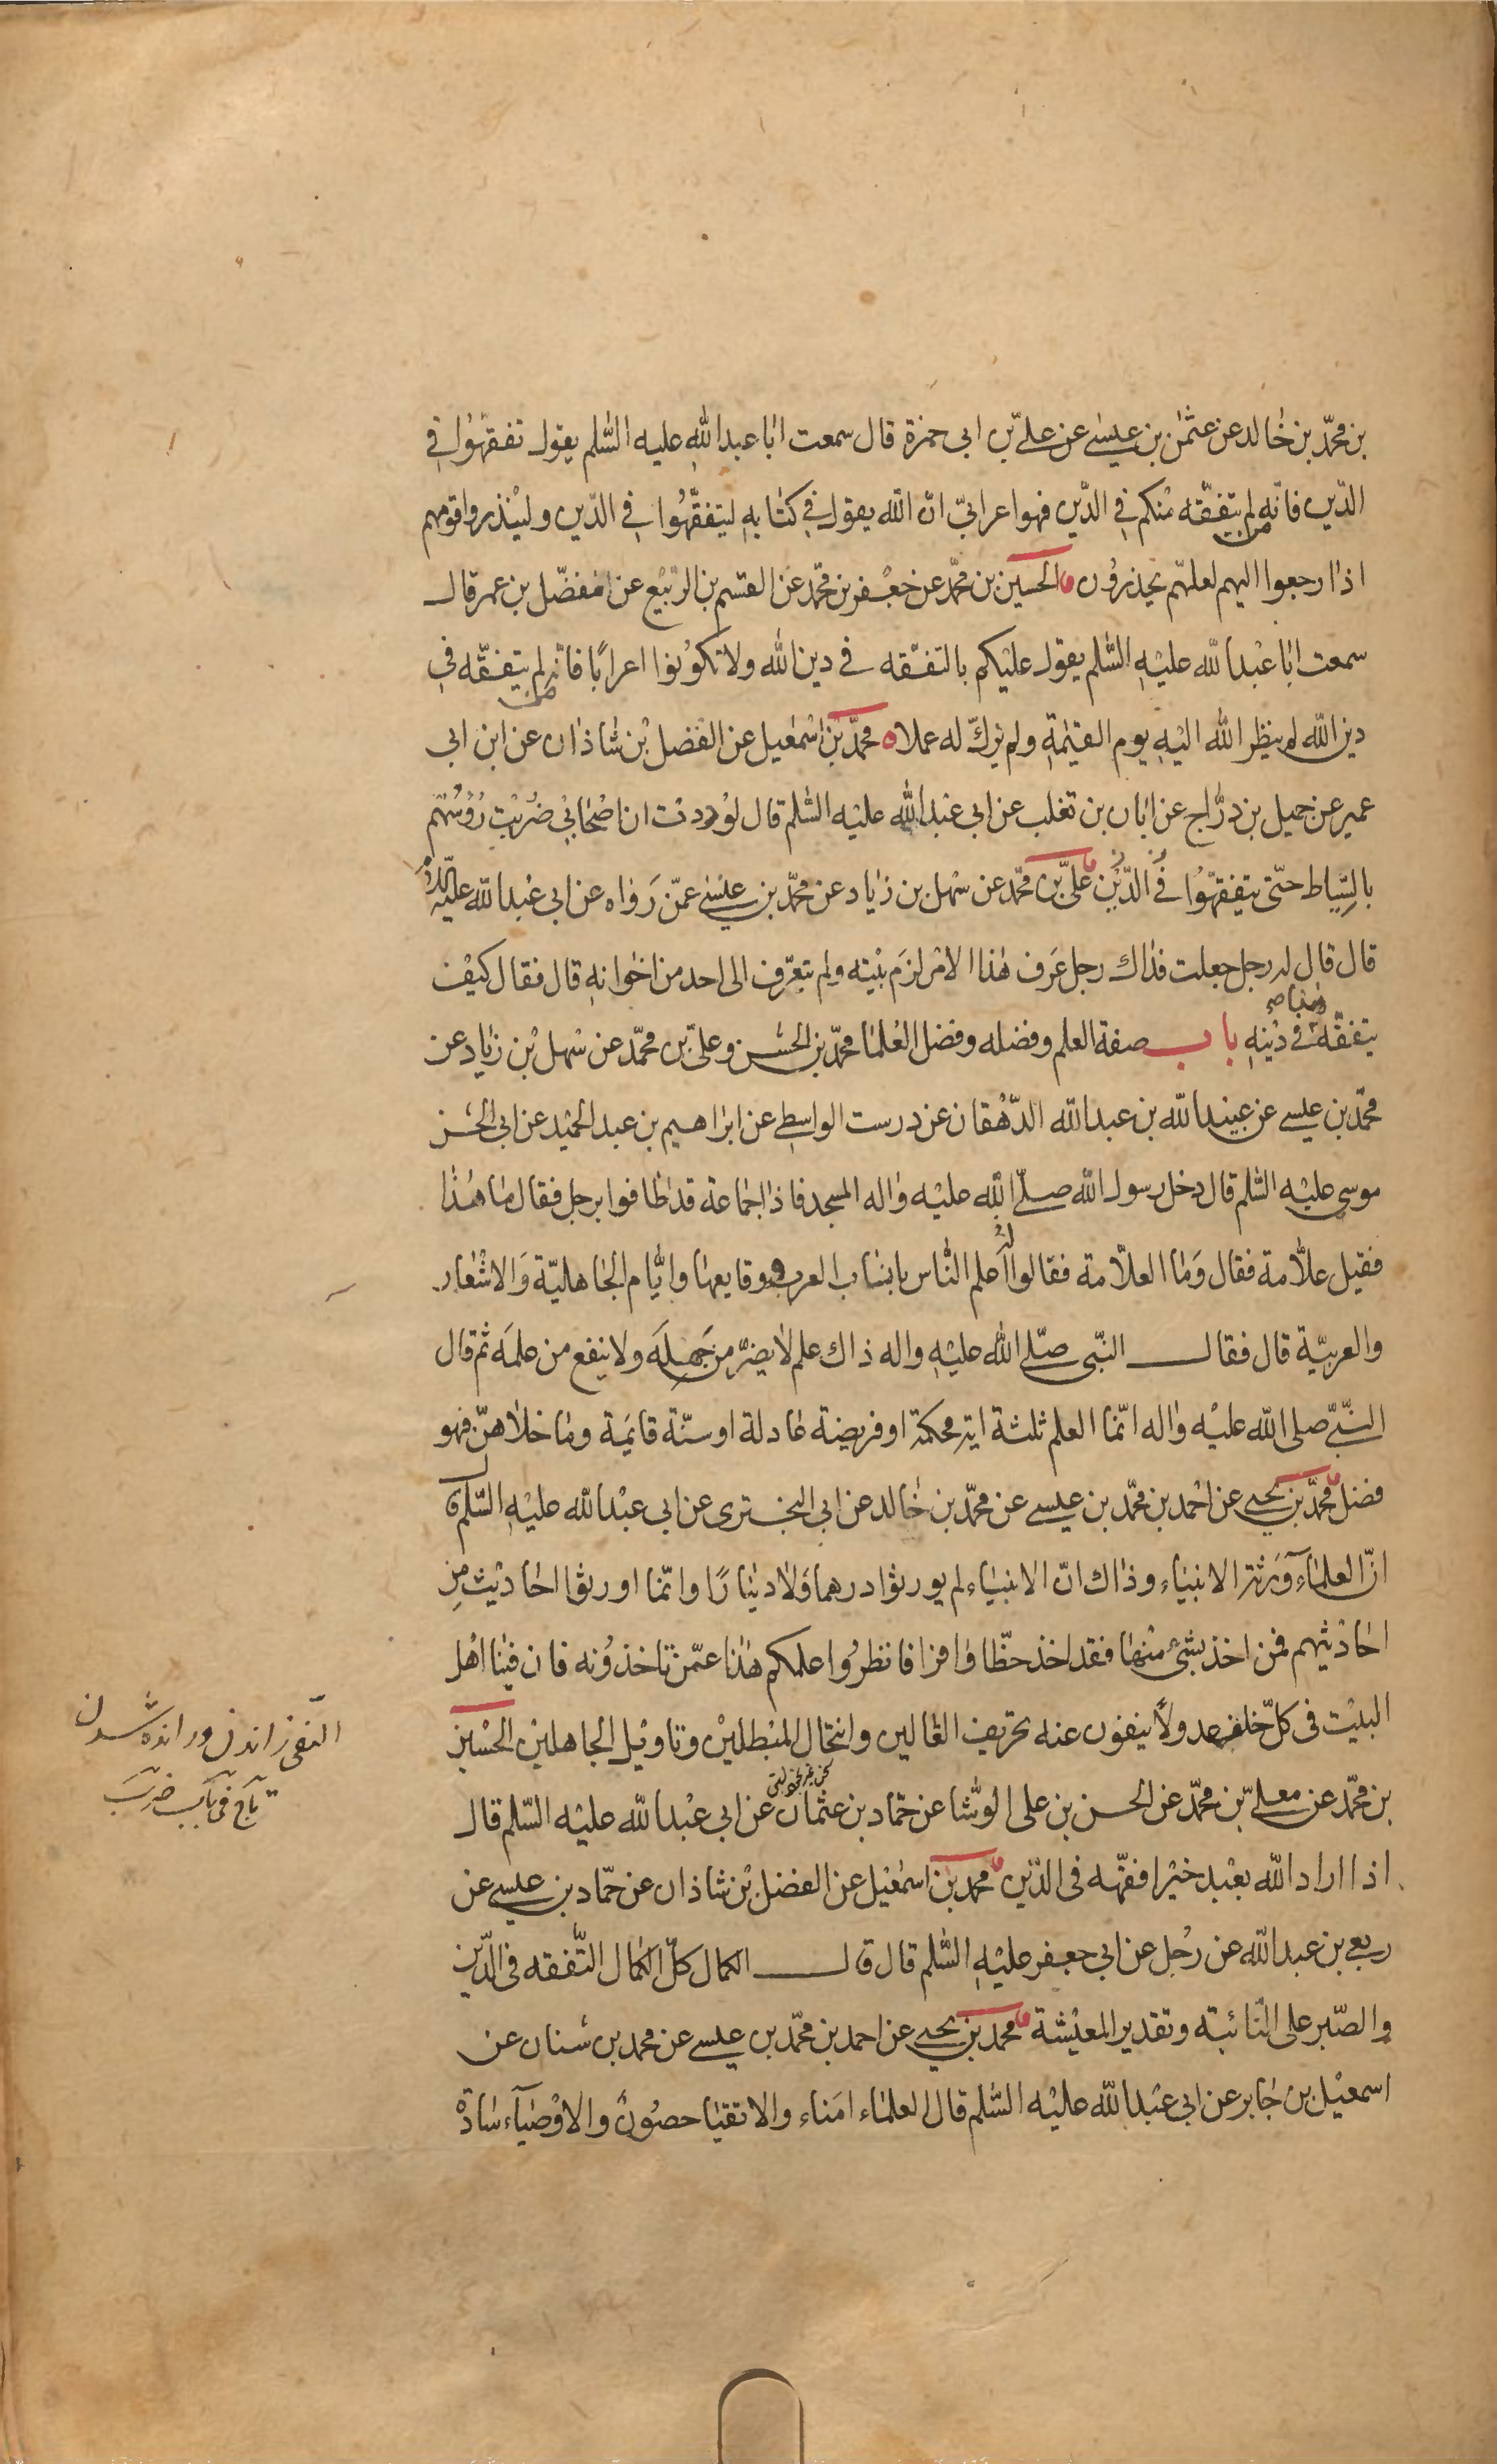 بن محمّد بن خالد عن عثمٰن بن عيسى عن علىّ بن ابى حمزة قال سمعت ابا عبد الله عليه السّلم يقول تفقهّوا فى
الدّين فانّه من لم يتفقّه منكم فى الدّين فهو اعرابىّ انّ الله يقول فى كتابه ليتفقّهوا فى الدّين ولينذروا قومهم
اذا رجعوا اليهم لعلهّم يحذرون الحسين بن محمّد عن جعفر بن محمّد عن القسم بن الرّبيع عن مفضّل بن عمر قال
سمعت ابا عبد الله عليه السّلم يقول عليكم بالتفقّه فى دين الله ولا تكونوا اعرابًا فانّه من لم يتفقّه فى
دين الله لم ينظر الله اليه يوم القيٰمة ولم يزكّ له عملا ه محمّد بن اسمٰعيل عن الفضل بن شاذان عن ابن ابى
عمير عن جميل بن درّاج عن ابان بن تغلب عن ابى عبد الله عليه السّلم قال لوددت ان اصحابى ضربت رؤسهم
بالسّياط حتىّ يتفقهّوا فى الدّين علىّ بن محمّد عن سهل بن زياد عن محمّد بن عيسى عمّن رواه عن ابى عبد الله عليه السلم
قال قال له رجل جعلت فداك رجل عرف هٰذا الامر لزم بيته ولم يتعرّف الى احد من اخوانه قال فقال كيف
يتفقّه هذا فى دينه باب صفة العلم وفضله وفضل العُلما محمّد بن الحسن وعلىّ بن محمّد عن سهل بن زياد عن
محمّد بن عيسى عن عبيد الله بن عبد الله الدّهقان عن درست الواسطى عن ابراهيم بن عبد الحميد عن ابى الحسن
موسى عليه السّلم قال دخل رسول الله صلّى الله عليه واله المسجد فاذا جماعة قد اطافوا برجل فقال ما هٰذا
فقيل علّامة فقال وما العلّامة فقالوا له اعلم النّاس بانساب العرب ووقايعها وايّام الجاهليّة والاشعار
والعربيّة قال فقال النّبى صلّى الله عليه واله ذاك علم لا يضرّ من جهله ولا ينفع من علمه ثم قال
النّبىّ صلى الله عليه واله انّما العلم ثلثة اية محكمة او فريضة عادلة او سنّة قايمة وما خلاهنّ فهو
فضل محمّد بن يحيى عن احمد بن محمّد بن عيسى عن محمّد بن خالد عن ابى البخترى عن ابى عبد الله عليه السّلم قال
انّ العلماء ورثة الانبياء وذاك انّ الانبياء لم يورثوا درهما ولا دينارًا وانّما اورثوا احاديث من
احاديثهم فمن اخذ بشئ منها فقد اخذ حظّا وافرا فانظروا علمكم هٰذا عمّن تاخذونه فان فينا اهل
البيت فى كلّ خلف عدولا ينفون عنه تحريف الغالين وانتحال المبطلين وتاويل الجاهلين الحسين
بن محمّد عن معلّى بن محمّد عن الحسن بن على الوشّا عن حمّاد بن عثمان عن ابى عبد الله عليه السّلم قال
اذا اراد الله بعبد خيرا فقّهه فى الدّين محمد بن اسمٰعيل عن الفضل بن شاذان عن حمّاد بن عيسى عن
ربعى بن عبد الله عن رجل عن ابى جعفر عليه السّلم قال قال الكمال كلّ الكمال التّفقه فى الدّين
والصّبر على النّائبة وتقدير المعيشة محمد بن يحيى عن احمد بن محمّد بن عيسى عن محمد بن سنان عن
اسمعيل بن جابر عن ابى عبد الله عليه السّلم قال العلماء امناء والاتقيا حصون والاوصياء سادة
النفى راندن ورانده شدن
تاج فى باب ضرب